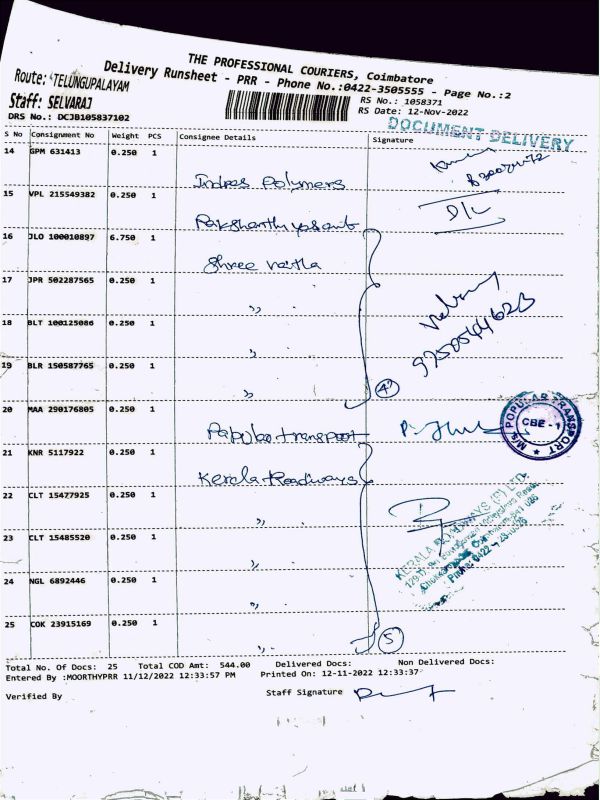 THE PROFESSIONAL COURIERS, Coimbatore
Delivery Runsheet - PRR - Phone No.:0422-3505555 - Page No.:2
Route: TELUNGUPALAYAM
Staff: SELVARAJ
DRS No.: DCJB105837102
RS No.: 1058371
RS Date: 12-Nov-2022
DOCUMENT DELIVERY
S No Consignment No Weight PCS Consignee Details Signature
14 GPM 631413 0.250 1
Indres Polymers
15 VPL 215549382 0.250 1
D/L
16 JLO 100010897 6.750 1
Shree
17 JPR 502287565 0.250 1
"
18 BLT 100125086 0.250 1
"
19 BLR 150587765 0.250 1
"
4
20 MAA 290176805 0.250 1
transport
M/s. POPULAR TRANSPORT
CBE - 1
21 KNR 5117922 0.250 1
Kerala Roadways
22 CLT 15477925 0.250 1
"
KERALA ROADWAYS (P) LTD.
23 CLT 15485520 0.250 1
"
24 NGL 6892446 0.250 1
"
25 COK 23915169 0.250 1
"
5
Total No. Of Docs: 25 Total COD Amt: 544.00 Delivered Docs: Non Delivered Docs:
Entered By :MOORTHYPRR 11/12/2022 12:33:57 PM Printed On: 12-11-2022 12:33:37
Verified By Staff Signature